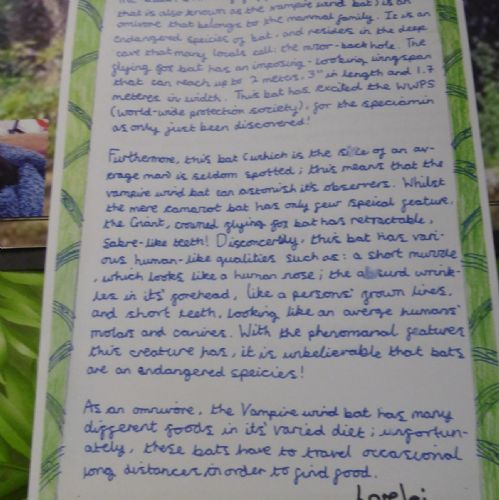 that is also known as the vampire wind bat) is an
omnivore that belongs to the mammal family. It is an
endangered species of bat, and resides in the deep
cave that many locals call: the razor-back hole. The
flying fox bat has an imposing-looking wingspan
that can reach up to 2 metres, 3" in length and 1.7
metres in width. This bat has excited the WWPS
(world-wide protection society), for the speciamin
as only just been discovered!
Furthermore, this bat (which is the size of an av-
erage man) is seldom spotted; this means that the
vampire wind bat can astonish it's observers. Whilst
the mere camarot bat has only few speical feature,
the Giant, crowned flying fox bat has retractable,
Sabre-like teeth! Disconcertbly, this bat Has vari-
ous human-like qualities such as: a short muzzle
, which looks like a human nose; the absurd wrink-
les in its' forehead, like a persons' frown lines,
and short teeth, looking like an averge humans'
molars and canines. With the phenomanal features
this creature has, it is unbelievable that bats
are an endangered speicies!
As an omnivore, the Vampire wind bat has many
different foods in its' varied diet; unfortun-
ately, these bats have to travel occasional
long distances, in order to find food.